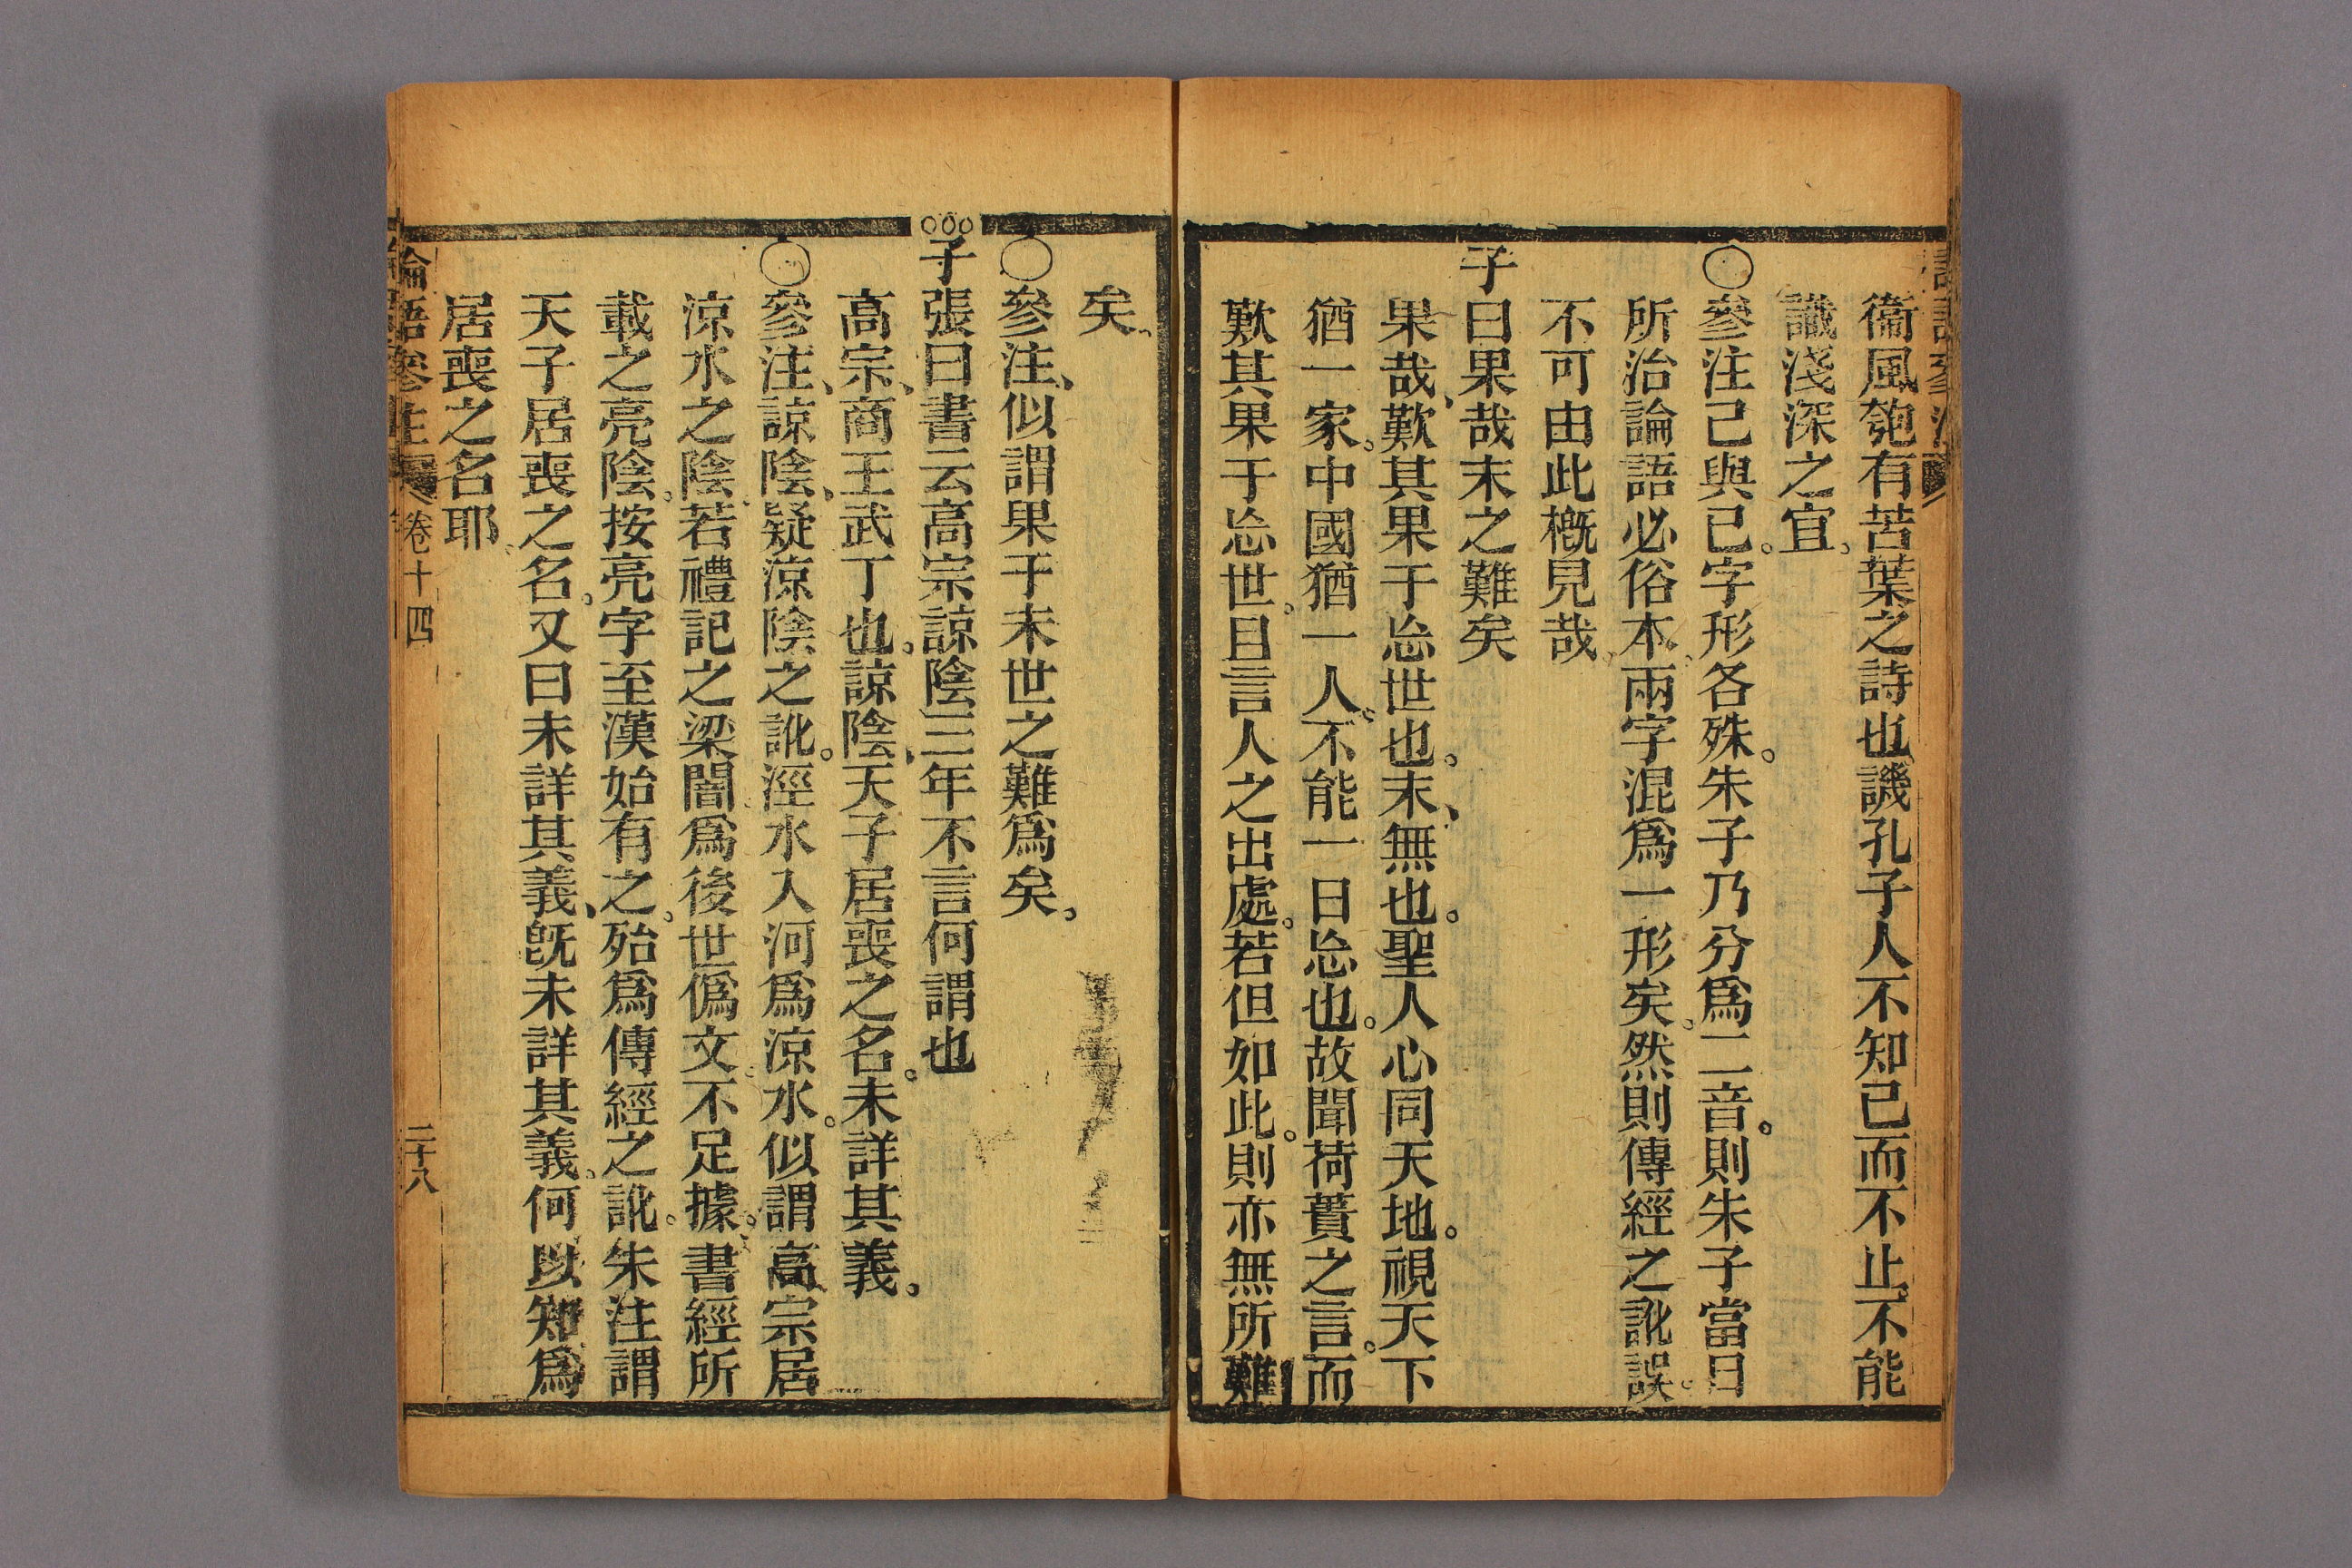 衞風匏有苦葉之詩也、譏孔子人不知己而不止。不能
識淺深之宜。
○參注己與已。字形各殊。朱子乃分爲二音。則朱子當日
所治論語必俗本。兩字混爲一形矣。然則傳經之訛誤。
不可由此槪見哉。
子曰果哉末之難矣
果哉、歎其果于㤀世也。末、無也。聖人心同天地。視天下
猶一家。中國猶一人。不能一日㤀也。故聞荷蕢之言。而
歎其果于㤀世。且言人之出處。若但如此。則亦無所難
矣。
○參注、似謂果于末世之難爲矣。
○○○子張曰書云高宗諒陰三年不言何謂也
高宗、商王武丁也。諒陰、天子居喪之名。未詳其義。
○參注、諒陰、疑涼陰之訛。涇水入河爲涼水。似謂高宗居
涼水之陰。若禮記之梁闇。爲後世僞文。不足據。書經所
載之亮陰。按亮字至漢始有之。殆爲傳經之訛。朱注謂
天子居喪之名。又曰未詳其義、旣未詳其義。何以知爲
居喪之名耶。
論語參注 卷十四 二十八